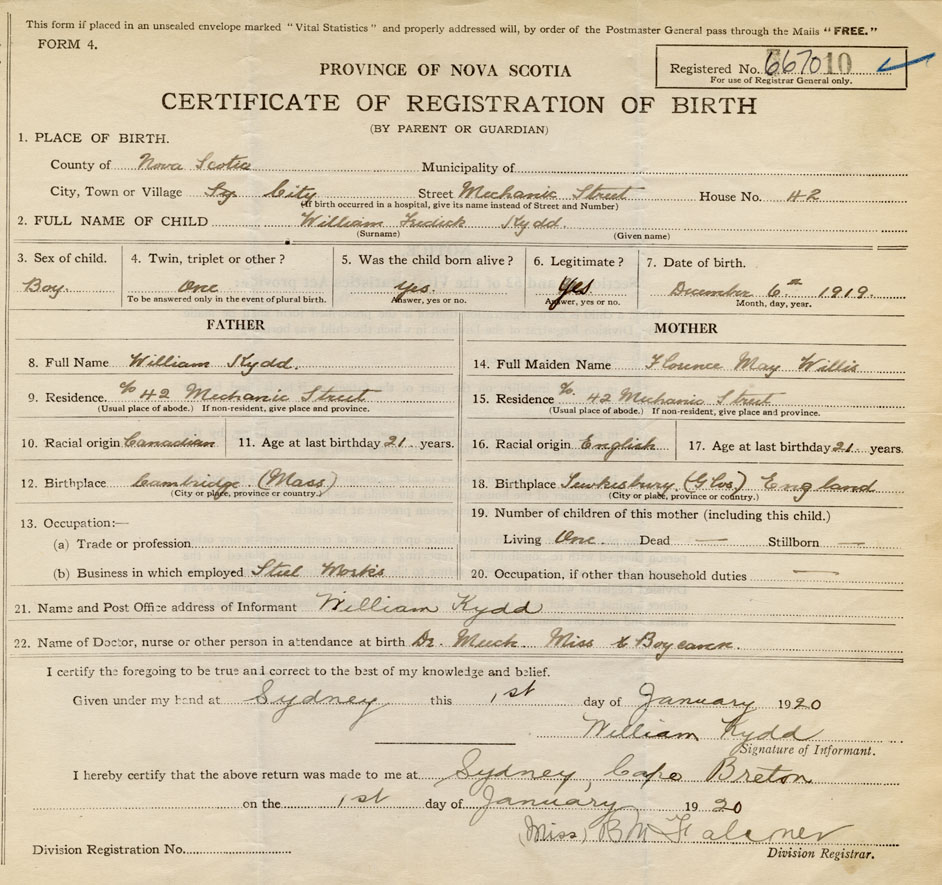 This form if placed in an unsealed envelope marked "Vital Statistics" and properly addressed will, by order of the Postmaster General pass through the Mails "FREE."
FORM 4.
Registered No. 667010
For use of Registrar General only.
PROVINCE OF NOVA SCOTIA
CERTIFICATE OF REGISTRATION OF BIRTH
(BY PARENT OR GUARDIAN)
1. PLACE OF BIRTH.
County of Nova Scotia Municipality of
City, Town or Village Sy. City Street Mechanic Street House No. 42
(If birth occurred in a hospital, give its name instead of Street and Number)
2. FULL NAME OF CHILD William Fredick Kydd.
(Surname) (Given name)
3. Sex of child. 4. Twin, triplet or other ? 5. Was the child born alive ? 6. Legitimate ? 7. Date of birth.
Boy. One yes. Yes December 6th 1919.
To be answered only in the event of plural birth. Answer, yes or no. Answer, yes or no. Month, day, year.
FATHER MOTHER
8. Full Name William Kydd. 14. Full Maiden Name Florence May Willis
9. Residence. % 42 Mechanic Street 15. Residence %. 42 Mechanic Street
(Usual place of abode.) If non-resident, give place and province. (Usual place of abode.) If non-resident, give place and province.
10. Racial origin Canadian 11. Age at last birthday 21 years. 16. Racial origin English 17. Age at last birthday 21 years.
12. Birthplace Cambridge (Mass) 18. Birthplace Tewkesbury (Glos.) England
(City or place, province or country.) (City or place, province or country.)
13. Occupation:— 19. Number of children of this mother (including this child.)
(a) Trade or profession. Living One. Dead — Stillborn —
(b) Business in which employed Steel Works 20. Occupation, if other than household duties —
21. Name and Post Office address of Informant William Kydd
22. Name of Doctor, nurse or other person in attendance at birth Dr. Miss
I certify the foregoing to be true and correct to the best of my knowledge and belief.
Given under my hand at Sydney this 1st day of January 1920
William Kydd
Signature of Informant.
I hereby certify that the above return was made to me at Sydney, Cape Breton
on the 1st day of January 1920
(Miss) B M Falconer
Division Registration No. Division Registrar.